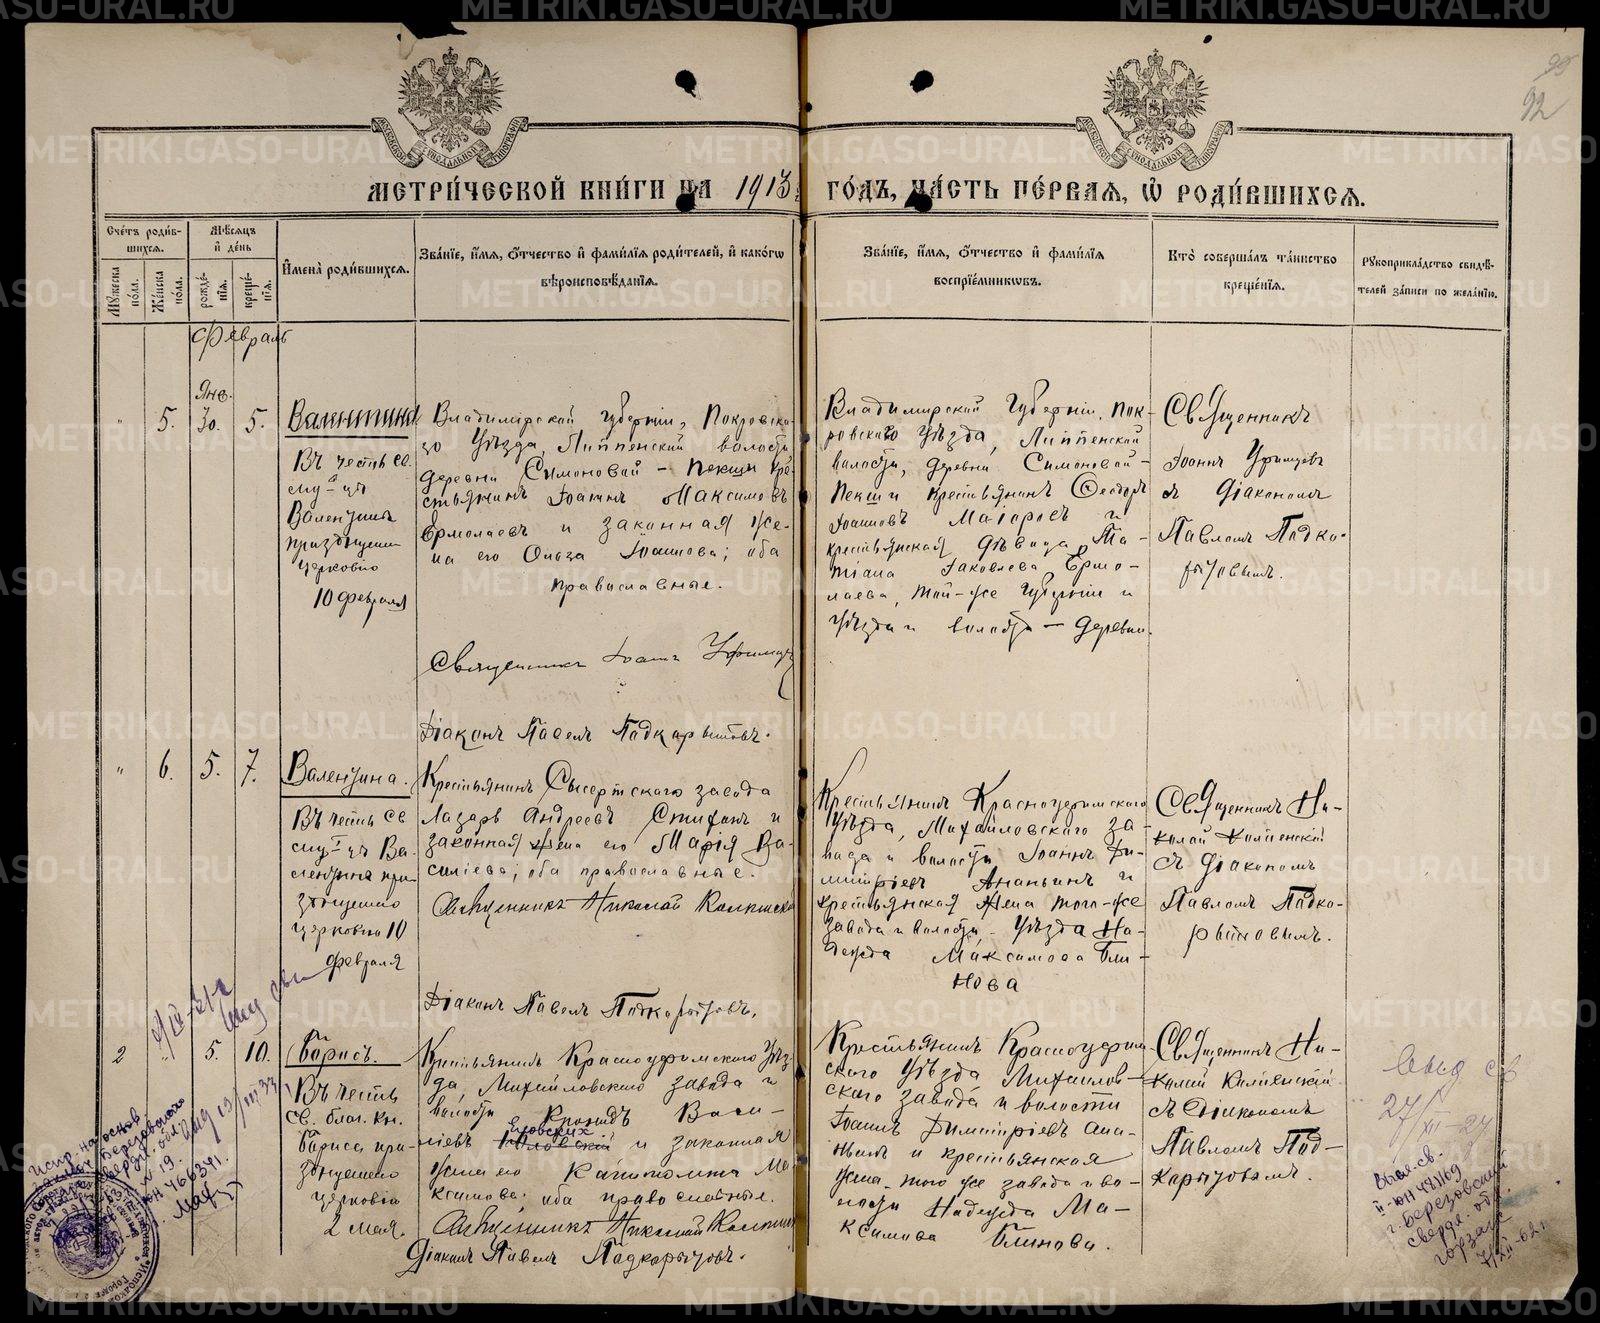 92
МЕТРИ́ЧЕСКОЙ КНИ́ГИ НА 1913 ГО́ДЪ, ЧА́СТЬ ПЕ́РВАѦ, Ѡ҆ РОДИ́ВШИХСѦ.
Сче́тъ роди́в-
шихсѧ.
Мѣ́сѧцъ
и҆ де́нь
И҆мена̀ роди́вшихсѧ.
Зва́нїе, и҆́мѧ, ѻ҆́тчество и҆ фами́лїѧ роди́телей, и҆ како́гѡ
вѣроисповѣ́данїѧ.
Зва́нїе, и҆́мѧ, ѻ҆́тчество и҆ фами́лїѧ
воспрїе́мникѡвъ.
Кто̀ соверша́лъ та́инство
креще́нїѧ.
Рꙋкоприкла́дство свидѣ́-
телей за́писи по жела́нїю.
Мꙋ́жеска
по́ла.
Же́нска
по́ла.
рожде́-
нїѧ.
креще́-
нїѧ.
Февраль
5.
Янв.
30.
5.
Валентина
Въ честь св.
муч-цы
Валентины
празднуемы
церковію
10 февраля
Владимірской губерніи, Покровска-
го уѣзда, Липпенской волости
деревни Симоновой - Пекши кре-
стьянинъ Іоаннъ Максимовъ
Ермолаевъ и законная же-
на его Ольга Іоаннова; оба
православные.
Священникъ Іоаннъ Уфимцевъ
Діаконъ Павелъ Подкорытовъ.
Владимірской губерніи, Пок-
ровскаго уѣзда, Липпенской
волости, деревни Симоновой-
Пекши крестьянинъ Ѳеодоръ
Іоанновъ Маіоровъ и
крестьянская дѣвица Та-
тіана Іаковлева Ермо-
лаева, той-же губерніи и
уѣзда и волости - деревни.
Священникъ
Іоаннъ Уфимцевъ
съ діакономъ
Павломъ Подко-
рытовымъ.
6.
5.
7.
Валентина.
Въ честь св
муч-цы Ва-
лентины пра-
зднуемыя
церковію 10
февраля
Крестьянинъ Сысертскаго завода
Лазарь Андреевъ и
законная жена его Марія Ва-
силіева, оба православные.
Священникъ Николай
Діаконъ Павелъ Подкорытовъ.
Крестьянинъ Красноуфимскаго
уѣзда, Михайловскаго за-
вода и волости Іоаннъ Ди-
митріевъ Ананьинъ и
крестьянская жена того-же
завода и волости, уѣзда На-
дежда Максимова Бли-
нова
Священникъ Ни-
колай
съ діакономъ
Павломъ Подко-
рытовымъ.
2
5.
10.
Борисъ.
Въ честь
св. благ. кн.
Бориса пра-
зднуемаго
церковію
2 мая.
Крестьянинъ Красноуфимскаго уѣз-
да, Михайловскаго завода и
волости Васи-
ліевъ и законная
жена его Капитолина Ма-
ксимова; оба православные.
Священникъ Николай
Діаконъ Павелъ Подкорытовъ.
Крестьянинъ Красноуфим-
скаго уѣзда Михайлов-
скаго завода и волости
Іоаннъ Димитріевъ Ана-
ньинъ и крестьянская
жена того же завода и во-
лости Надежда Ма-
ксимова Блинова.
Священникъ Ни-
колай
съ діакономъ
Павломъ Под-
корытовымъ.
Выд св
27/XII-27
Выд. св.
г. Березовский
сверд. обл.
горзагс
7/XII-62г
METRIKI.GASO-URAL.RU